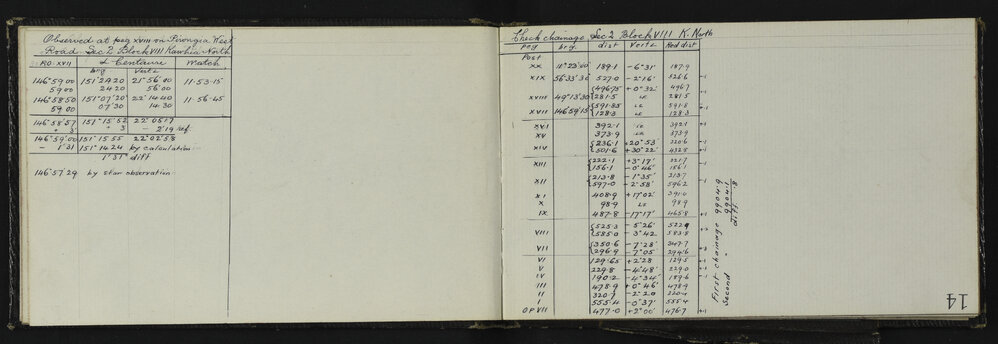 Observed at peg XVIII on Pirongia West
Road. Sec 2 Block VIII Kawhia North
RO. XVII α Centauri Watch
brg Vertl
146°59 00 151°24 20 21°56 00 11·53·15
59 00 24 20 56 00
146°58 50 151°07'20" 22°14 40 11·56·45
59 00 07'30 14 30
146°58'57 151°15'52 22°05 17
+ 3 + 3 - 2'19 ref.
146°59'00 151°15'55 22°02'58
- 1'31 151°14 24 by calculation
1'31" diff
146°57'29 by star observation
Check chainage Sec 2 Block VIII K. North
Peg brg. dist Vertl Red dist
Post
XX 11°23'00" 189·1 -6°31' 187·9
XIX 56°33'30 527·0 -2°16' 526·6 -1
496·75 +0°32' 496·7
XVIII 49°13'30 281·5 LE 281·5
XVII 146°59'15 591·85 LE 591·8 +1
128·3 LE 128·3
XVI 392·1 LE 392·1 +1
XV 373·9 LE 373·9
XIV 236·1 +20°53' 220·6 -1
501·6 +30°22' 432·8 +1
XIII 222·1 +3°17' 221·7
156·1 -0°46' 156·1
XII 213·8 -1°35' 213·7
597·0 -2°58' 596·2 -1
XI 408·9 +17°02' 391·0
X 98·9 LE 98·9
IX 487·8 -17°17' 465·8 +1
VIII 525·3 -5°26' 522·9
585·0 -3°42 583·8
VII 350·6 -7°28' 347·7
296·9 -7°05 294·6 +2
VI 129·65 +2°28 129·5 -1
V 229·8 -4°48' 229·0 -1
IV 190·2 -4°34' 189·6 -1
III 478·9 +0°46' 478·9
II 320·7 -2°20 320·4
I 555·4 -0°37' 555·4
OP VII 477·0 +2°00' 476·7 -1
First chainage 9904·9
Second " 9904·1
diff ·8
14